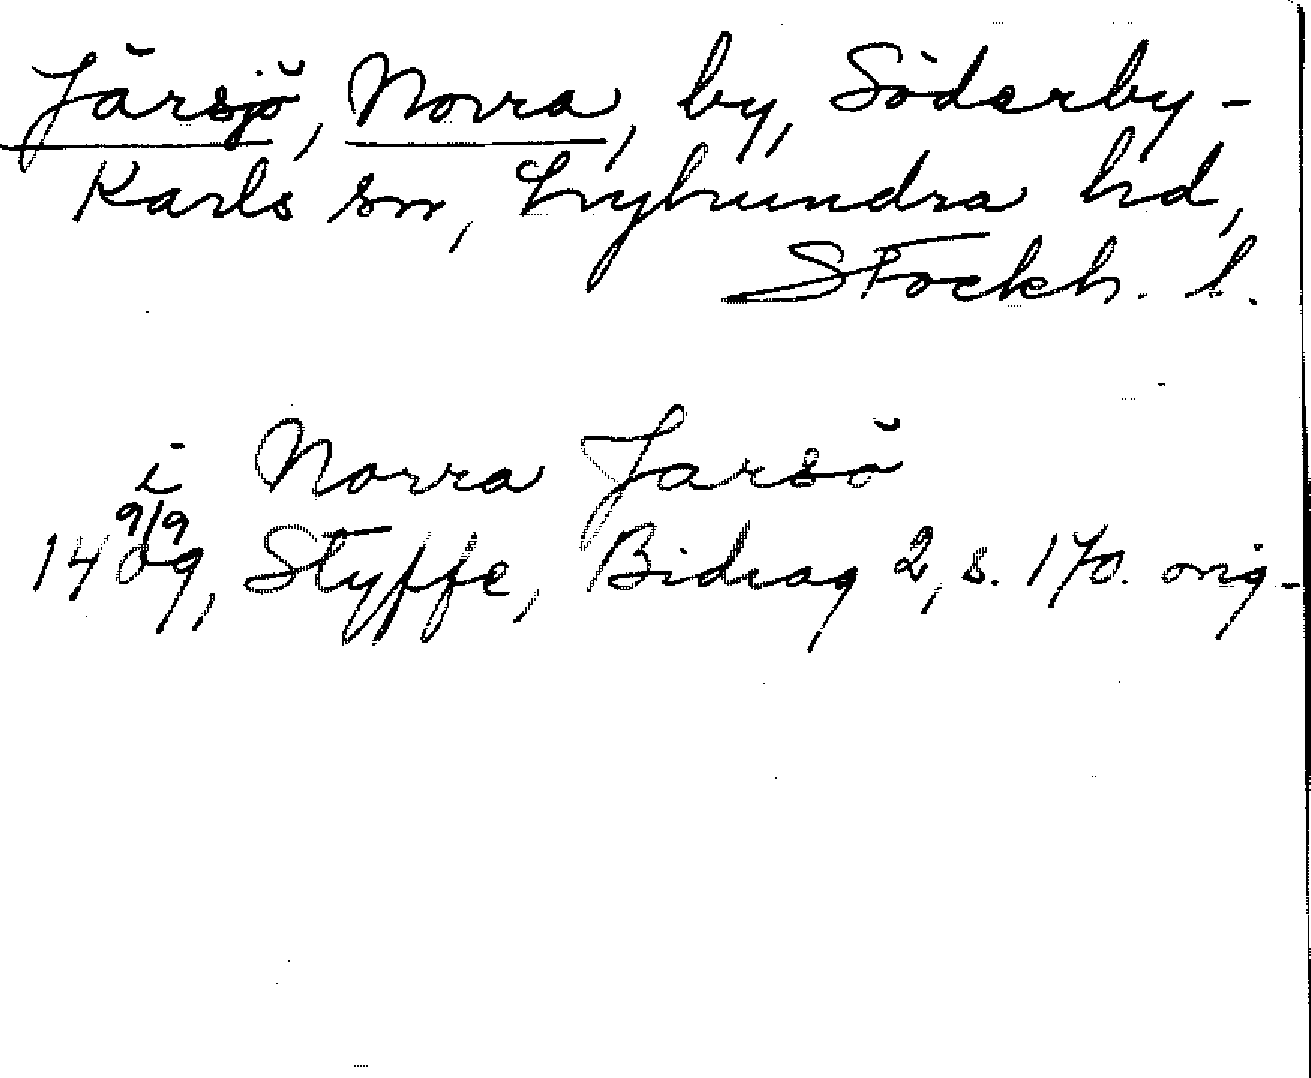 Järsjö, Norra, by, Söderby-
Karls sn, Lyhundra hd,
Stockh. l.
i Norra Jarsö
9/9
1409, Styffe, Bidrag 2, s. 170. orig.